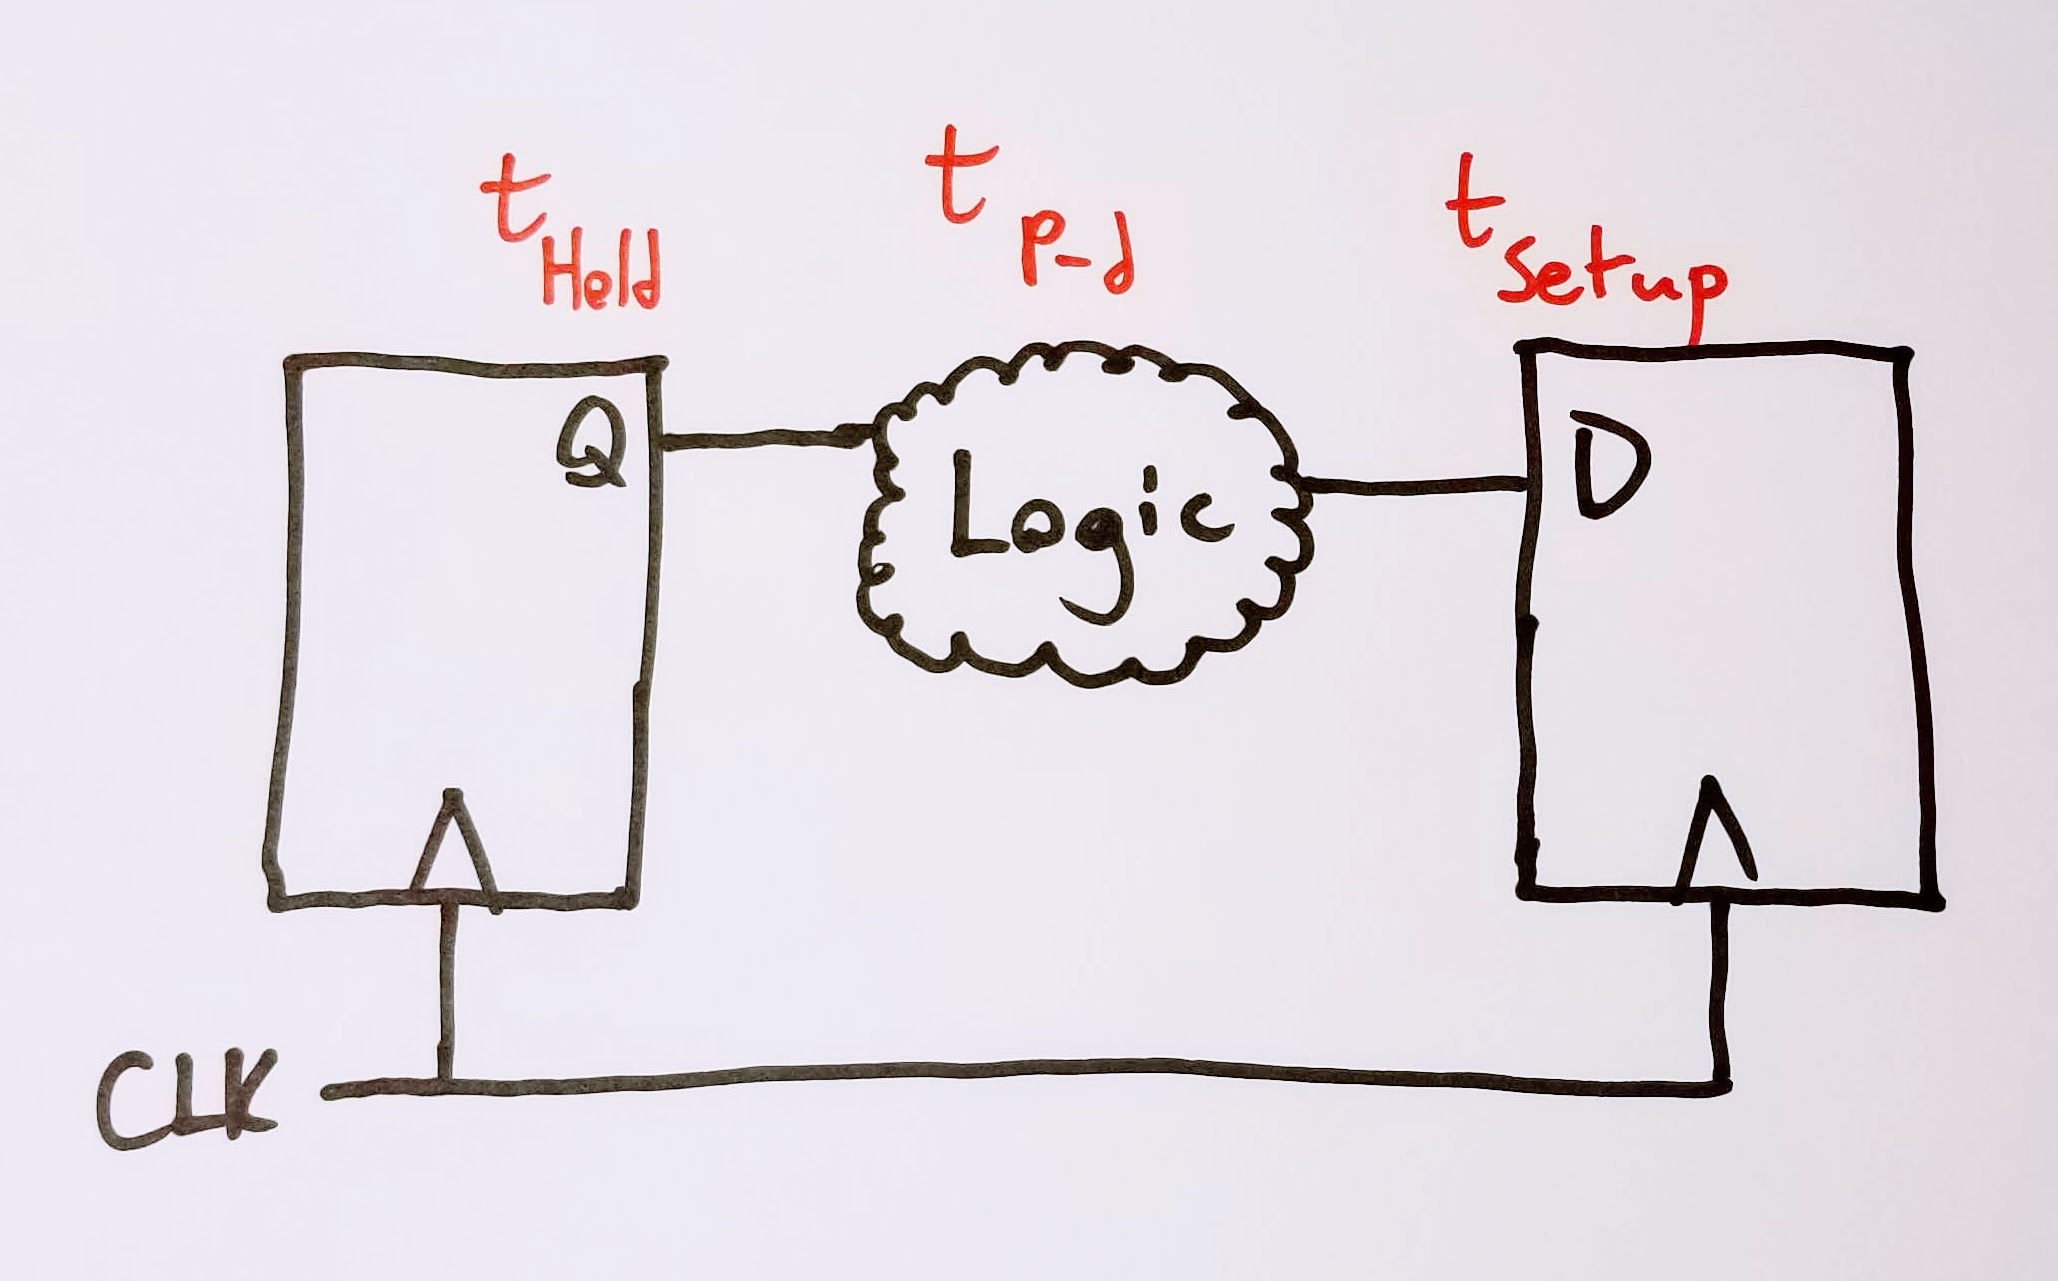 t Hold
t P-d
t Setup
Q
Logic
D
CLK